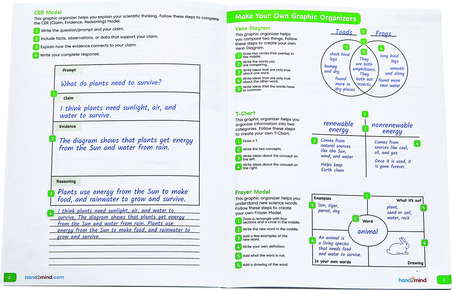 CER Model
This graphic organizer helps you explain your scientific thinking. Follow these steps to complete
the CER (Claim, Evidence, Reasoning) Model.
1 Write the question/prompt and your claim.
2 Include facts, observations, or data that support your claim.
3 Explain how the evidence connects to your claim.
4 Write your complete response.
Prompt
What do plants need to survive?
Claim
I think plants need sunlight, air, and
water to survive.
Evidence
The diagram shows that plants get energy
from the Sun and water from rain.
Reasoning
Plants use energy from the Sun to make
food, and rainwater to grow and survive.
I think plants need sunlight, air, and water to
survive. The diagram shows that plants get energy
from the Sun and water from rain. Plants use
energy from the Sun to make food, and rainwater to
grow and survive.
2
hand2mind.com
Make Your Own Graphic Organizers
Venn Diagram
This graphic organizer helps
you compare two things. Follow
these steps to create your own
Venn Diagram.
1 Draw two circles that overlap in
the middle.
2 Write the words you
are comparing.
3 Write ideas that are only true
about one word.
4 Write ideas that are only true
about the other word.
5 Write ideas that the words have
in common.
Toads
Frogs
short hind
legs
bumpy
and dry
found
more in
dry places
They
are both
amphibians.
They both
eat
insects.
long hind
legs
smooth
and slimy
found more
near water
T-Chart
This graphic organizer helps you
organize information into two
categories. Follow these steps
to create your own T-Chart.
1 Draw a T.
2 Write the two concepts.
3 Write ideas about the concept on
the left.
4 Write ideas about the concept on
the right.
renewable
energy
nonrenewable
energy
Comes from
natural sources
like the Sun,
wind, and water
Helps keep
Earth clean
Comes from
sources like coal,
oil, and gas
Once it is used, it
is gone forever.
Frayer Model
This graphic organizer helps you
understand new science words.
Follow these steps to create
your own Frayer Model.
1 Draw a rectangle with four
sections and a circle in the middle.
2 Write the new word in the middle.
3 Add a few examples of the
new word.
4 Write your own definition.
5 Add what the word is not.
6 Add a drawing of the word.
Examples
lion, tiger,
parrot, dog
What it's not
plant,
seed or soil,
water, rock
Word
animal
An animal is
a living species
that needs food
and water to survive.
In your own words
Drawing
hand2mind